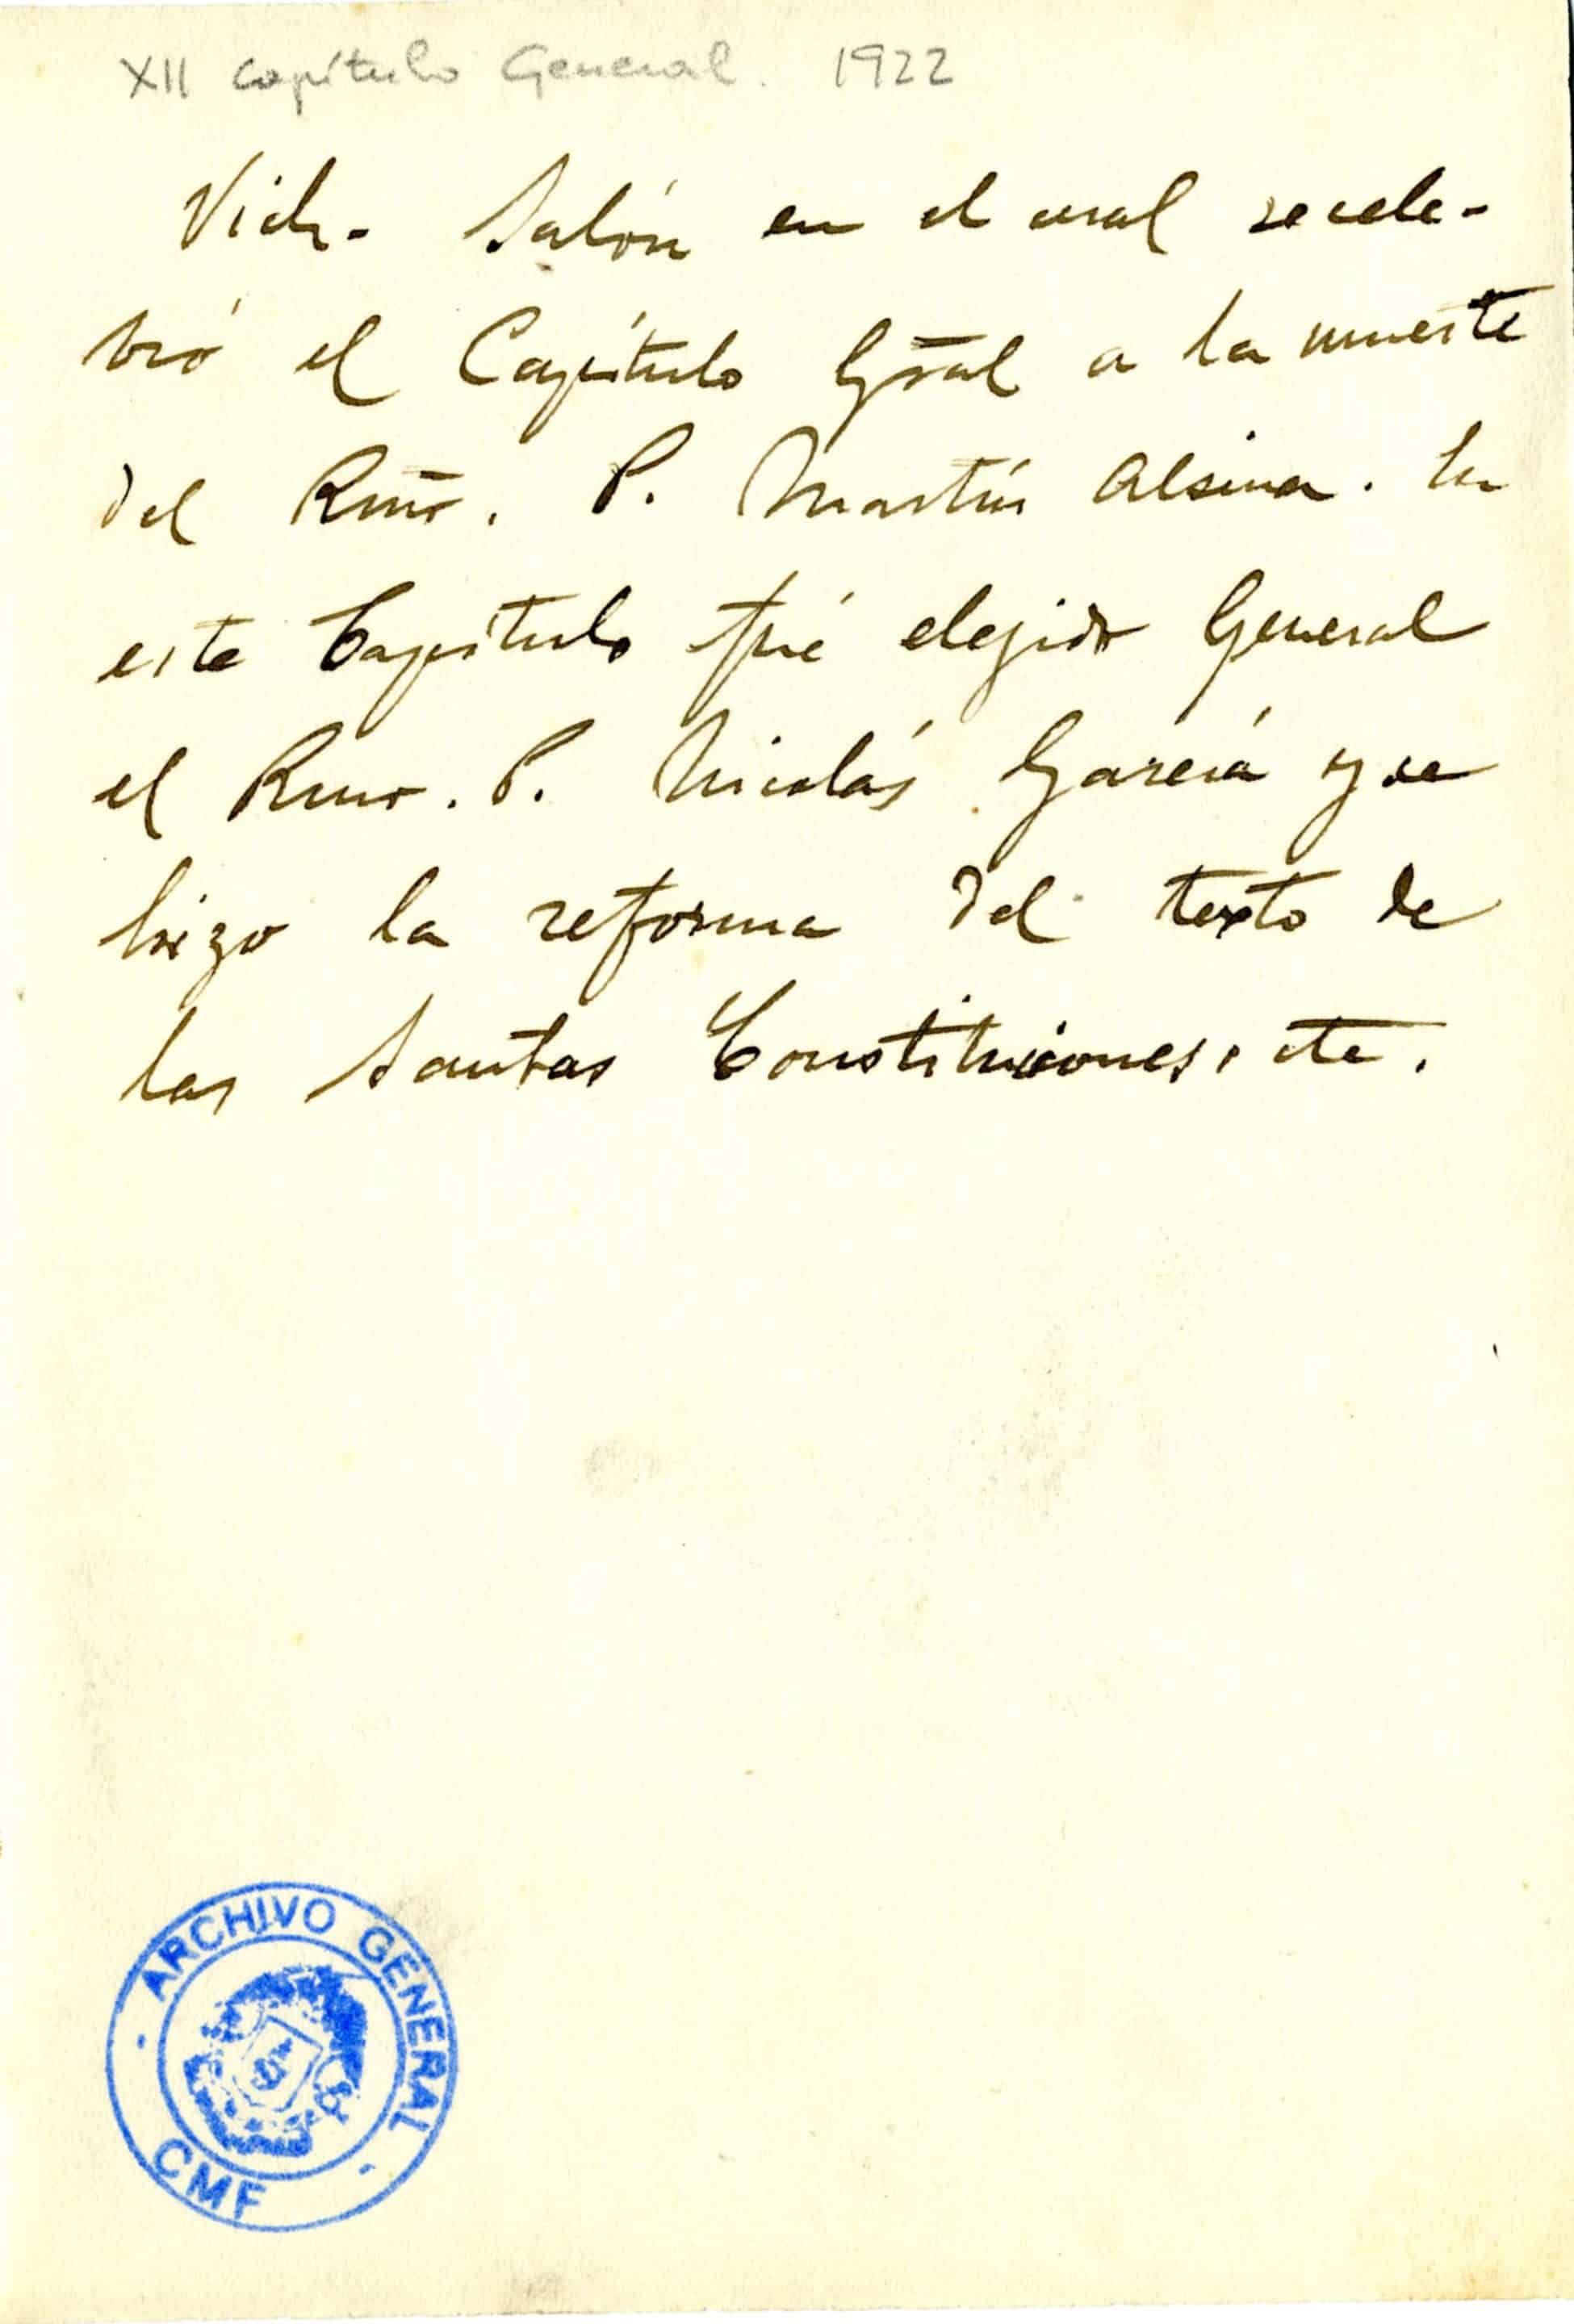 XII Capítulo General. 1922
Vich.- Salón en el cual se cele-
bró el Capítulo Gral a la muerte
del Rmo. P. Martín Alsina. En
este Capítulo fué elegido General
el Rmo. P. Nicolás García y se
hizo la reforma del texto de
las Santas Constituciones, etc.
ARCHIVO GENERAL
CMF